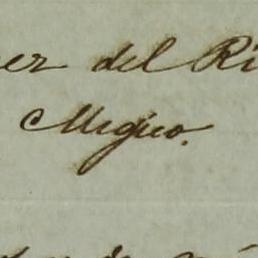 er del Ri
Megico.